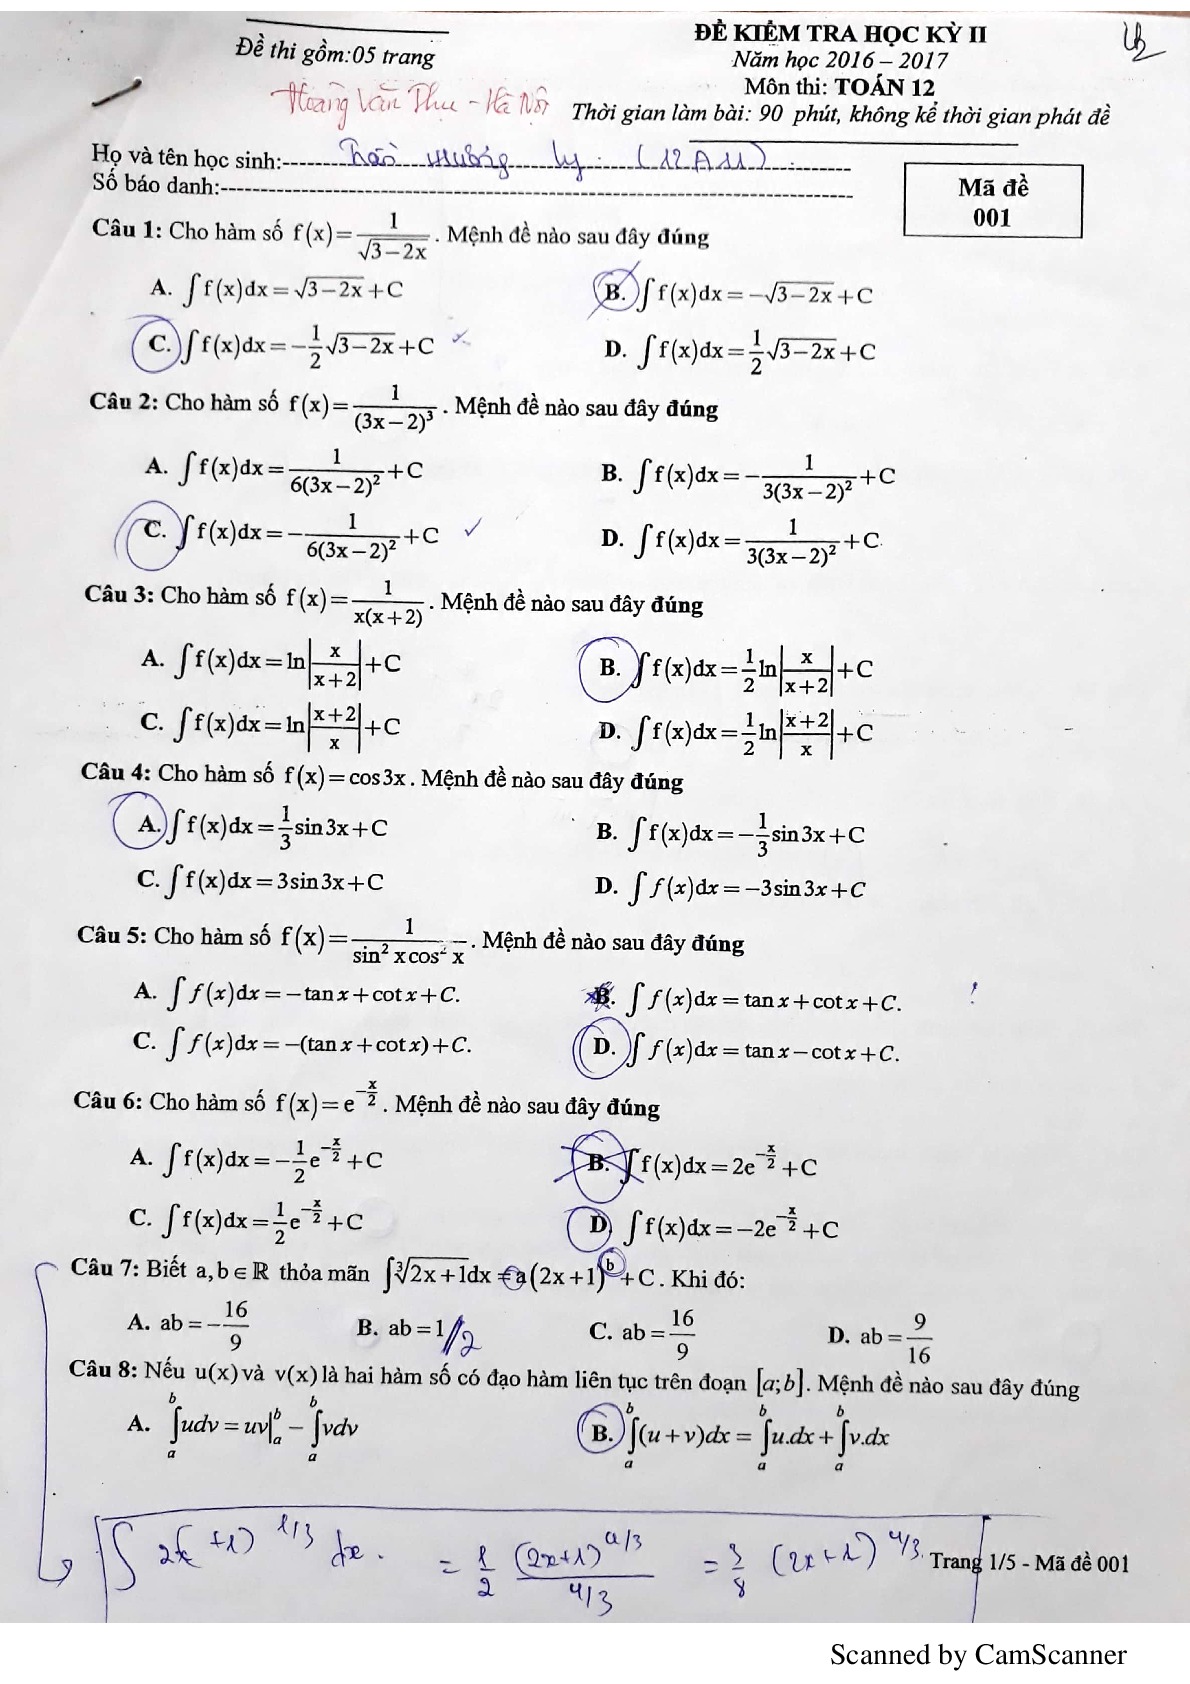 Đề thi gồm:05 trang
Hoàng Văn Thụ - Hà Nội
ĐỀ KIỂM TRA HỌC KỲ II
Năm học 2016 – 2017
Môn thi: TOÁN 12
Thời gian làm bài: 90 phút, không kể thời gian phát đề
Họ và tên học sinh: (12A11)
Số báo danh:
Mã đề
001
Câu 1: Cho hàm số f(x)=1/√(3−2x). Mệnh đề nào sau đây đúng
A. ∫f(x)dx=√(3−2x)+C B. ∫f(x)dx=−√(3−2x)+C
C. ∫f(x)dx=−1/2√(3−2x)+C D. ∫f(x)dx=1/2√(3−2x)+C
Câu 2: Cho hàm số f(x)=1/(3x−2)³. Mệnh đề nào sau đây đúng
A. ∫f(x)dx=1/(6(3x−2)²)+C B. ∫f(x)dx=−1/(3(3x−2)²)+C
C. ∫f(x)dx=−1/(6(3x−2)²)+C D. ∫f(x)dx=1/(3(3x−2)²)+C
Câu 3: Cho hàm số f(x)=1/(x(x+2)). Mệnh đề nào sau đây đúng
A. ∫f(x)dx=ln|x/(x+2)|+C B. ∫f(x)dx=1/2 ln|x/(x+2)|+C
C. ∫f(x)dx=ln|(x+2)/x|+C D. ∫f(x)dx=1/2 ln|(x+2)/x|+C
Câu 4: Cho hàm số f(x)=cos3x. Mệnh đề nào sau đây đúng
A. ∫f(x)dx=1/3 sin3x+C B. ∫f(x)dx=−1/3 sin3x+C
C. ∫f(x)dx=3sin3x+C D. ∫f(x)dx=−3sin3x+C
Câu 5: Cho hàm số f(x)=1/(sin²xcos²x). Mệnh đề nào sau đây đúng
A. ∫f(x)dx=−tanx+cotx+C. B. ∫f(x)dx=tanx+cotx+C.
C. ∫f(x)dx=−(tanx+cotx)+C. D. ∫f(x)dx=tanx−cotx+C.
Câu 6: Cho hàm số f(x)=e^(−x/2). Mệnh đề nào sau đây đúng
A. ∫f(x)dx=−1/2 e^(−x/2)+C B. ∫f(x)dx=2e^(−x/2)+C
C. ∫f(x)dx=1/2 e^(−x/2)+C D. ∫f(x)dx=−2e^(−x/2)+C
Câu 7: Biết a,b∈ℝ thỏa mãn ∫∛(2x+1)dx=a(2x+1)^b+C. Khi đó:
A. ab=−16/9 B. ab=1/2 C. ab=16/9 D. ab=9/16
Câu 8: Nếu u(x) và v(x) là hai hàm số có đạo hàm liên tục trên đoạn [a;b]. Mệnh đề nào sau đây đúng
A. ∫_a^b udv=uv|_a^b−∫_a^b vdv B. ∫_a^b (u+v)dx=∫_a^b u.dx+∫_a^b v.dx
∫2x+1)^(1/3) dx. = 1/2 (2x+1)^(4/3)/(4/3) = 3/8 (2x+1)^(4/3).
Trang 1/5 - Mã đề 001
Scanned by CamScanner